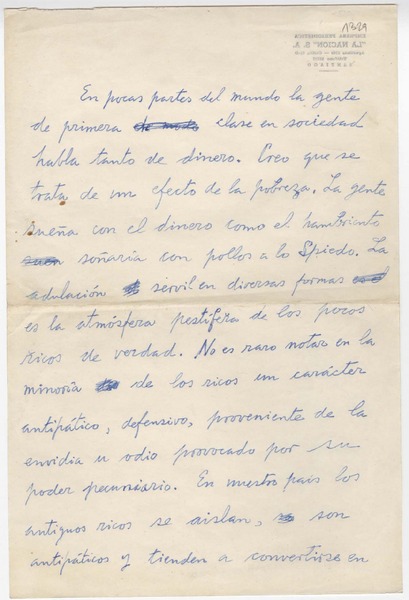 1329
EMPRESA PERIODISTICA
"LA NACION" S. A.
SANTIAGO
En pocas partes del mundo la gente
de primera clase en sociedad
habla tanto de dinero. Creo que se
trata de un efecto de la pobreza. La gente
sueña con el dinero como el hambriento
soñaría con pollos a lo Spiedo. La
adulación servil en diversas formas
es la atmósfera pestífera de los pocos
ricos de verdad. No es raro notar en la
minoría de los ricos un carácter
antipático, defensivo, proveniente de la
envidia u odio provocado por su
poder pecuniario. En nuestro país los
antiguos ricos se aislan, son
antipáticos y tienden a convertirse en